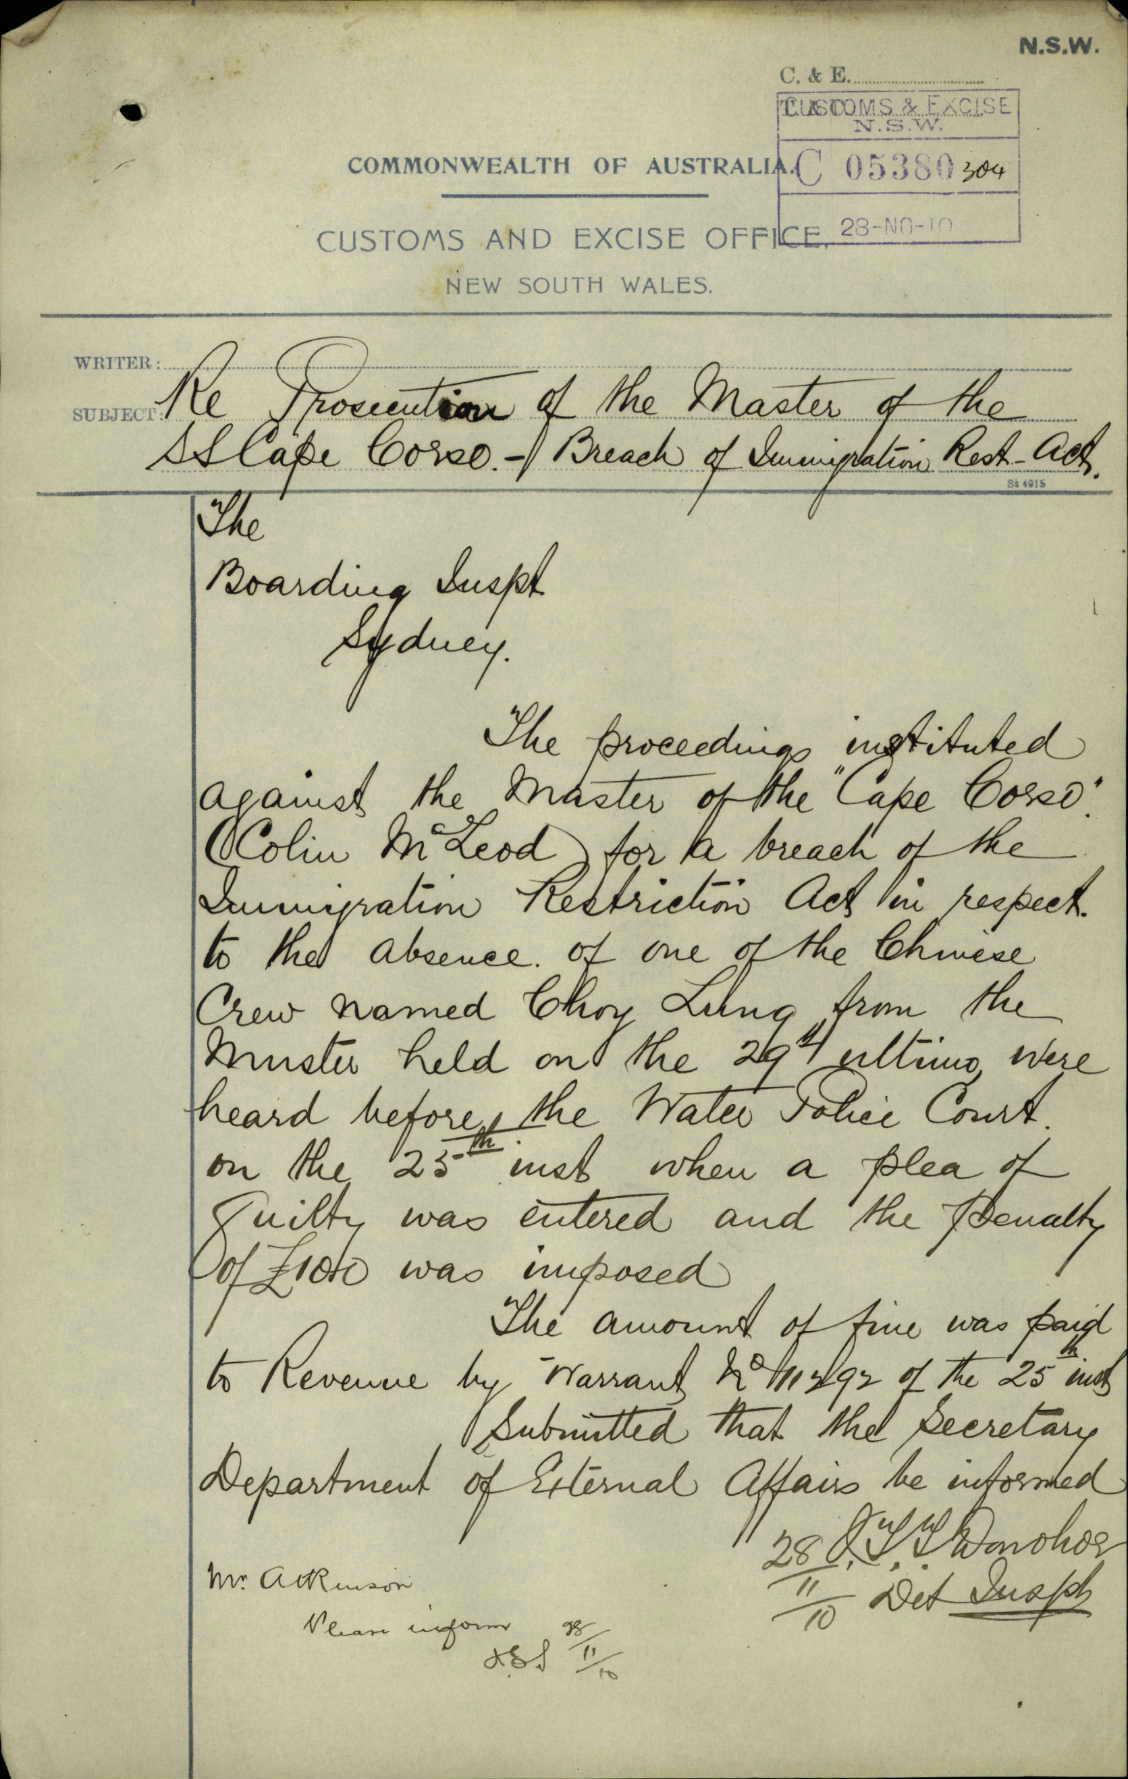 N.S.W.
C. & E.
T. & C.
CUSTOMS & EXCISE
N.S.W.
COMMONWEALTH OF AUSTRALIA.
C 05380 304
28-NO-10
CUSTOMS AND EXCISE OFFICE,
NEW SOUTH WALES.
WRITER:
SUBJECT: Re Prosecution of the Master of the
SS Cape Corso. - Breach of Immigration Rest- Act.
St 4915
The
Boarding Inspt
Sydney.
The proceedings instituted
against the Master of the "Cape Corso".
(Colin McLeod) for a breach of the
Immigration Restriction Act in respect.
to the absence. of one of the Chinese
Crew named Choy Lung from the
Muster held on the 29th ultimo, were
heard before, the Water Police Court.
on the 25th inst when a plea of
Guilty was entered and the penalty
of £100 was imposed
The amount of fine was paid
to Revenue by Warrant No 11292 of the 25th inst
Submitted that the Secretary
Department of External Affairs be informed
28/11/10 Donohoe
Det Inspt
Mr. Atkinson
Please inform
28/11/10